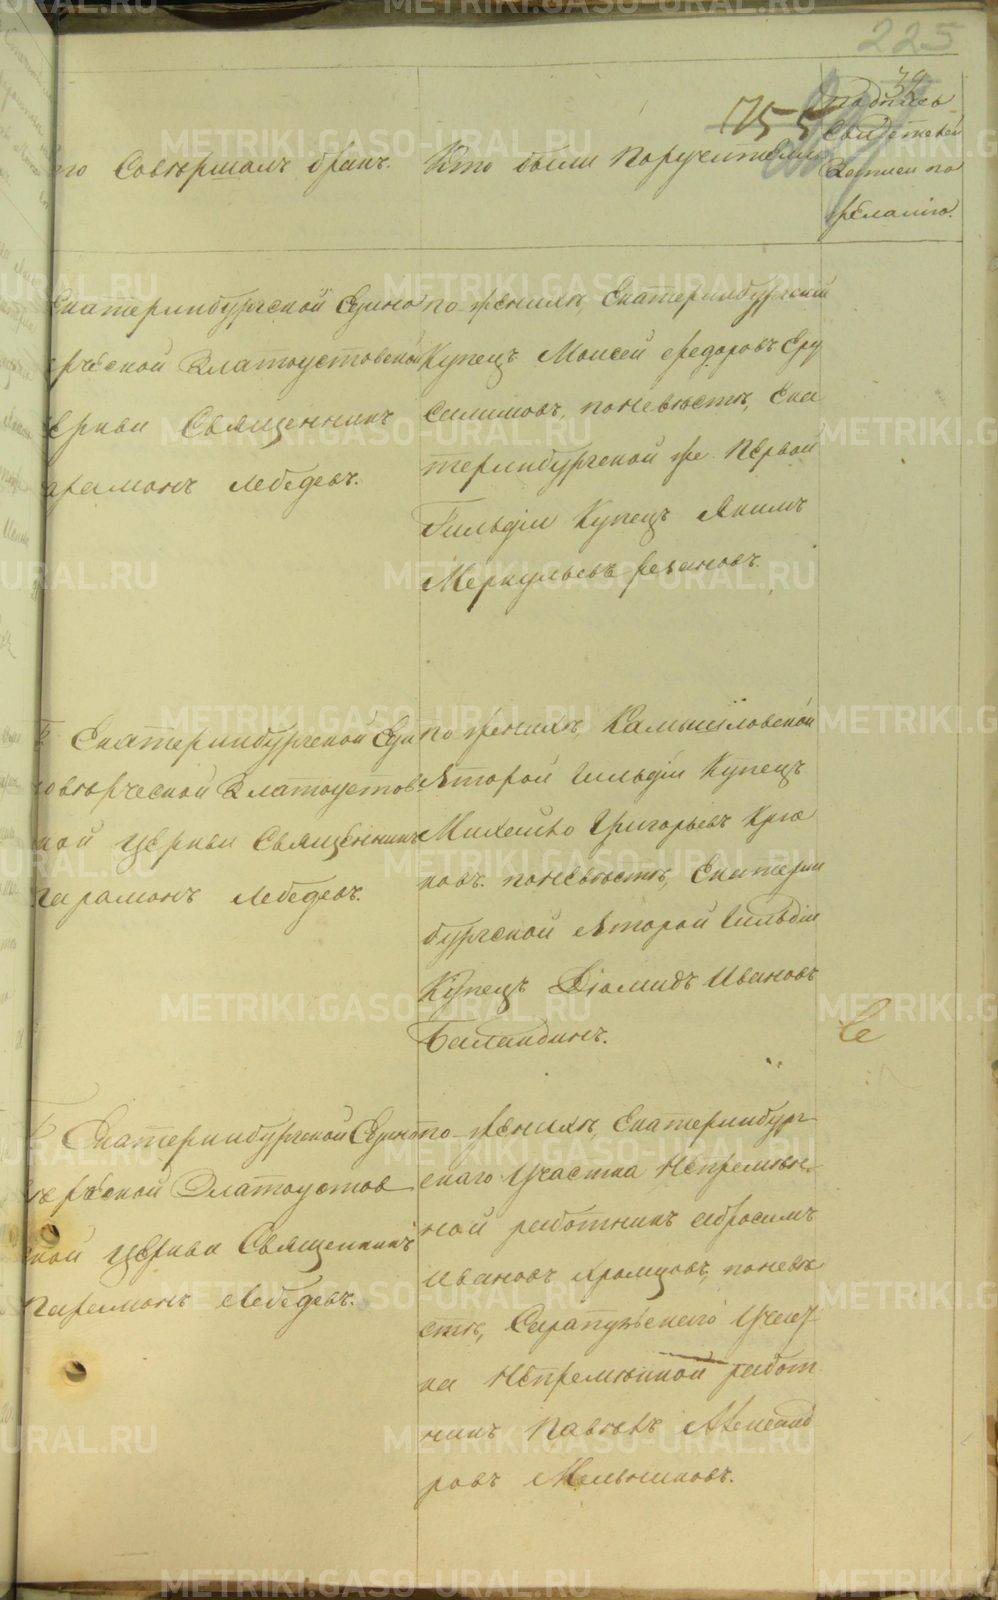 225
39
755
Кто Совершалъ бракъ.
Кто были Поручители
Подпись
Свидетелей
Записи по
желанію.
Екатеринбургской Едино
верческой Златоустовской
церкви Священникъ
Парамонъ Лебедевъ.
по женихѣ, Екатеринбургский
Купецъ Моисей Федоровъ Еру
салимовъ, поневѣстѣ, Ека
теринбургской же Первой
Гильдіи Купецъ Якимъ
Меркульевъ Резановъ.
Екатеринбургской Еди
новѣрческой Златоустов
ской церкви Священникъ
Парамонъ Лебедевъ.
по женихѣ, Камышловской
Второй гильдіи Купецъ
Михаило Григорьевъ Крю
ковъ. поневѣстѣ, Екатерин
бургской Второй Гильдіи
Купецъ Діомидъ Ивановъ
Баландинъ.
Екатеринбургской Едино
верческой Златоустов
ской церкви Священникъ
Парамонъ Лебедевъ.
по женихѣ, Екатеринбург
скаго Участка Непремѣн
ной работникъ Абросимъ
Ивановъ Храмцовъ, поневѣ
стѣ, Сарапульскаго Участ
ка Непремѣнной работ
никъ Павелъ Александ
ровъ Мельниковъ.
METRIKI.GASO-URAL.RU